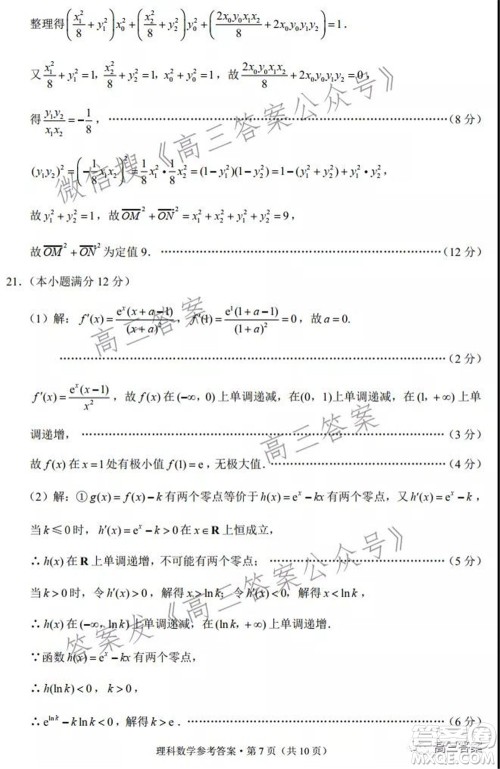 整理得(x₁²/8+y₁²)x₀²+(x₂²/8+y₂²)y₀²+(2x₀y₀x₁x₂/8+2x₀y₀y₁y₂)=1.
又x₁²/8+y₁²=1, x₂²/8+y₂²=1, x₀²+y₀²=1, 故2x₀y₀x₁x₂/8+2x₀y₀y₁y₂=0,
得y₁y₂/x₁x₂=-1/8, ……(8 分)
(y₁y₂)²=(-1/8 x₁x₂)²=1/8 x₁²·1/8 x₂²=(1-y₁²)(1-y₂²)=1-(y₁²+y₂²)+y₁²·y₂²,
故y₁²+y₂²=1, 故OM²+ON²=x₁²+x₂²+y₁²+y₂²=9,
故OM²+ON²为定值 9. ……(12 分)
21.（本小题满分 12 分）
（1）解：f′(x)=eˣ(x+a-1)/(x+a)², f′(1)=e¹(1+a-1)/(1+a)²=0, 故a=0.
……(2 分)
f′(x)=eˣ(x-1)/x², 故 f(x) 在(-∞, 0) 上单调递减，在(0, 1)上单调递减，在(1, +∞) 上单
调递增，……(3 分)
故 f(x) 在 x=1 处有极小值 f(1)=e，无极大值. ……(4 分)
（2）解：①g(x)=f(x)-k 有两个零点等价于 h(x)=eˣ-kx 有两个零点，又 h′(x)=eˣ-k，
当 k≤0 时，h′(x)=eˣ-k>0 在 x∈R 上恒成立，
∴h(x) 在 R 上单调递增，不可能有两个零点；……(5 分)
当 k>0 时，令 h′(x)>0，解得 x>ln k；令 h′(x)<0，解得 x<ln k，
∴h(x) 在(-∞, ln k) 上单调递减，在(ln k, +∞) 上单调递增.
∵函数 h(x)=eˣ-kx 有两个零点，
∴h(ln k)<0，k>0，
∴e^(ln k)-k ln k<0，解得 k>e. ……(6 分)
理科数学参考答案·第 7 页（共 10 页）
微信搜《高三答案公众号》
高三答案
高三答案
《高三答案公众号》
高三答案
MXQE.COM